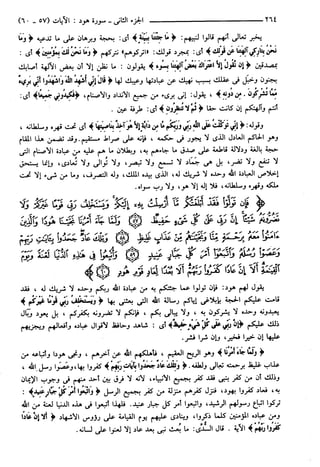 ٢٦٤ الجزء الثاني - سورة هود : الآيات (٥٧ - ٦٠)
يخبر تعالى أنهم قالوا لنبيهم: ﴿مَا جِئْتَنَا بِبَيِّنَةٍ﴾ أي: بحجة وبرهان على ما تدعيه ﴿وَمَا
نَحْنُ بِتَارِكِي آلِهَتِنَا عَنْ قَوْلِكَ﴾ أي: بمجرد قولك: «اتركوهم» نتركهم ﴿وَمَا نَحْنُ لَكَ بِمُؤْمِنِينَ﴾
بمصدقين ﴿إِنْ نَقُولُ إِلَّا اعْتَرَاكَ بَعْضُ آلِهَتِنَا بِسُوءٍ﴾ يقولون : ما نظن إلا أن بعض الآلهة أصابك
بجنون وخبل في عقلك بسبب نهيك عن عبادتها وعيبك لها ﴿قَالَ إِنِّي أُشْهِدُ اللَّهَ وَاشْهَدُوا أَنِّي بَرِيءٌ
مِمَّا تُشْرِكُونَ . مِنْ دُونِهِ﴾ ، يقول: إني بريء من جميع الأنداد والأصنام، ﴿فَكِيدُونِي جَمِيعًا﴾ أي:
أنتم وآلهتكم إن كانت حقا ﴿ثُمَّ لَا تُنْظِرُونِ﴾ أي : طرفة عين .
وقوله: ﴿إِنِّي تَوَكَّلْتُ عَلَى اللَّهِ رَبِّي وَرَبِّكُمْ مَا مِنْ دَابَّةٍ إِلَّا هُوَ آخِذٌ بِنَاصِيَتِهَا﴾ أي تحت قهره وسلطانه ،
وهو الحاكم العادل الذي لا يجور في حكمه ، فإنه على صراط مستقيم. وقد تضمن هذا المقام
حجة بالغة ودلالة قاطعة على صدق ما جاءهم به، وبطلان ما هم عليه من عبادة الأصنام التي
لا تنفع ولا تضر، بل هي جماد لا تسمع ولا تبصر، ولا توالي ولا تعادي، وإنما يستحق
إخلاص العبادة الله وحده لا شريك له، الذي بيده الملك، وله التصرف، وما من شيء إلا تحت
ملكه وقهره وسلطانه، فلا إله إلا هو، ولا رب سواه.
فَإِنْ تَوَلَّوْا فَقَدْ أَبْلَغْتُكُمْ مَا أُرْسِلْتُ بِهِ إِلَيْكُمْ وَيَسْتَخْلِفُ رَبِّي قَوْمًا غَيْرَكُمْ وَلَا
تَضُرُّونَهُ شَيْئًا إِنَّ رَبِّي عَلَى كُلِّ شَيْءٍ حَفِيظٌ ٥٧ وَلَمَّا جَاءَ أَمْرُنَا نَجَّيْنَا هُودًا وَالَّذِينَ
آمَنُوا مَعَهُ بِرَحْمَةٍ مِنَّا وَنَجَّيْنَاهُمْ مِنْ عَذَابٍ غَلِيظٍ ٥٨ وَتِلْكَ عَادٌ جَحَدُوا بِآيَاتِ رَبِّهِمْ
وَعَصَوْا رُسُلَهُ وَاتَّبَعُوا أَمْرَ كُلِّ جَبَّارٍ عَنِيدٍ ٥٩ وَأُتْبِعُوا فِي هَذِهِ الدُّنْيَا لَعْنَةً وَيَوْمَ
الْقِيَامَةِ أَلَا إِنَّ عَادًا كَفَرُوا رَبَّهُمْ أَلَا بُعْدًا لِعَادٍ قَوْمِ هُودٍ ٦٠
يقول لهم هود: فإن تولوا عما جئتكم به من عبادة الله ربكم وحده لا شريك له ، فقد
قامت عليكم الحجة بإبلاغي إياكم رسالة الله التي بعثني بها ﴿وَيَسْتَخْلِفُ رَبِّي قَوْمًا غَيْرَكُمْ﴾
يعبدونه وحده لا يشركون به ، ولا يبالي بكم ، فإنكم لا تضرونه بكفركم ، بل يعود وبال
ذلك عليكم ﴿إِنَّ رَبِّي عَلَى كُلِّ شَيْءٍ حَفِيظٌ﴾ أي : شاهد وحافظ لأقوال عباده وأفعالهم ويجزيهم
عليها إن خيرا فخير، وإن شرا فشر.
﴿وَلَمَّا جَاءَ أَمْرُنَا﴾ وهو الريح العقيم ، فأهلكهم الله عن آخرهم ، ونجى هودا وأتباعه من
عذاب غليظ برحمته تعالى ولطفه. ﴿وَتِلْكَ عَادٌ جَحَدُوا بِآيَاتِ رَبِّهِمْ﴾ كفروا بها، وعصوا رسل الله ،
وذلك أن من كفر بنبي فقد كفر بجميع الأنبياء، لأنه لا فرق بين أحد منهم في وجوب الإيمان
به ، فعاد كفروا بهود، فنزل كفرهم منزلة من كفر بجميع الرسل ﴿وَاتَّبَعُوا أَمْرَ كُلِّ جَبَّارٍ عَنِيدٍ﴾ :
تركوا اتباع رسولهم الرشيد، واتبعوا أمر كل جبار عنيد. فلهذا أتبعوا في هذه الدنيا لعنة من الله
ومن عباده المؤمنين كلما ذكروا، وينادى عليهم يوم القيامة على رؤوس الأشهاد ﴿أَلَا إِنَّ عَادًا
كَفَرُوا رَبَّهُمْ﴾ الآية . قال السُّدِّي: ما بُعث نبي بعد عاد إلا لعنوا على لسانه.